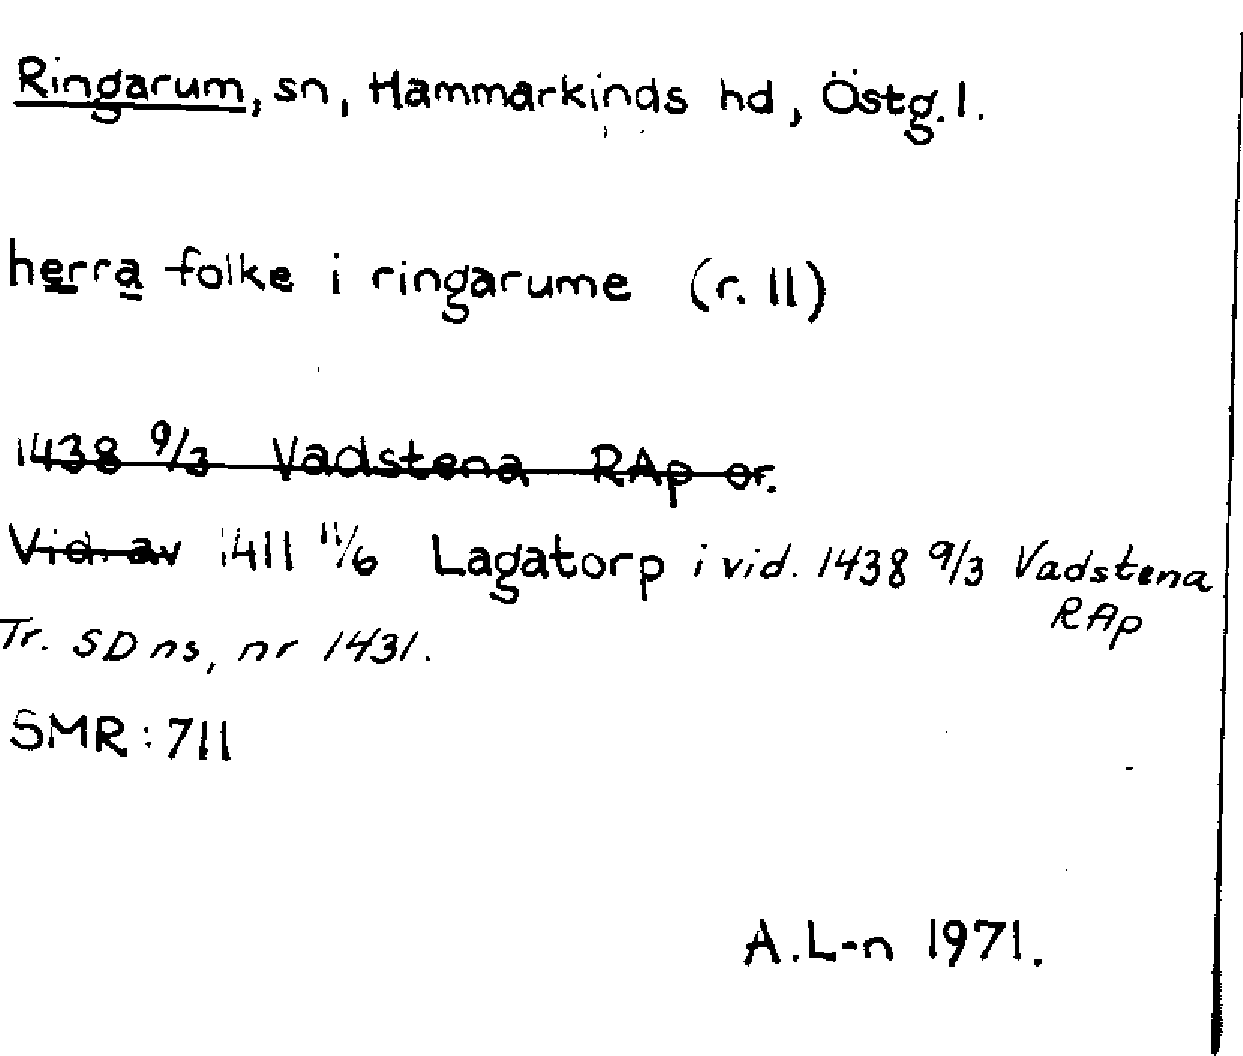 Ringarum, sn, Hammarkinds hd, Östg.l.
herra folke i ringarume (r. 11)
1438 9/3 Vadstena RAp or.
Vid. av 1411 11/6 Lagatorp i vid. 1438 9/3 Vadstena
RAp
Tr. SD ns, nr 1431.
SMR: 711
A.L-n 1971.